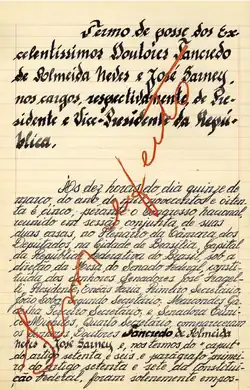 Termo de posse dos Ex-
celentíssimos Doutores Tancredo
de Almeida Neves e José Sarney,
nos cargos, respectivamente, de Pre-
sidente e Vice-Presidente da Repú-
blica.
Às dez horas do dia quinze de
março, do ano de mil novecentos e oiten-
ta e cinco, perante o Congresso Nacional,
reunido em sessão conjunta de suas
duas casas, no Plenário da Câmara dos
Deputados, na Cidade de Brasília, Capital
da República Federativa do Brasil, sob a
direção da Mesa do Senado Federal,
dos Senhores Senadores José Fragel-
li, Presidente, Enéas Faria, Primeiro Secretário,
João Lobo, Segundo Secretário, Marcondes Ga-
Terceiro Secretário, e Senadora
Quarto Secretário
Tancredo de Almeida
Neves e José Sarney e, nos termos do "caput"
do artigo setenta e seis e parágrafo
do artigo setenta e sete da Consti-
tuição Federal, foram solenemente empos-
Sem efeito